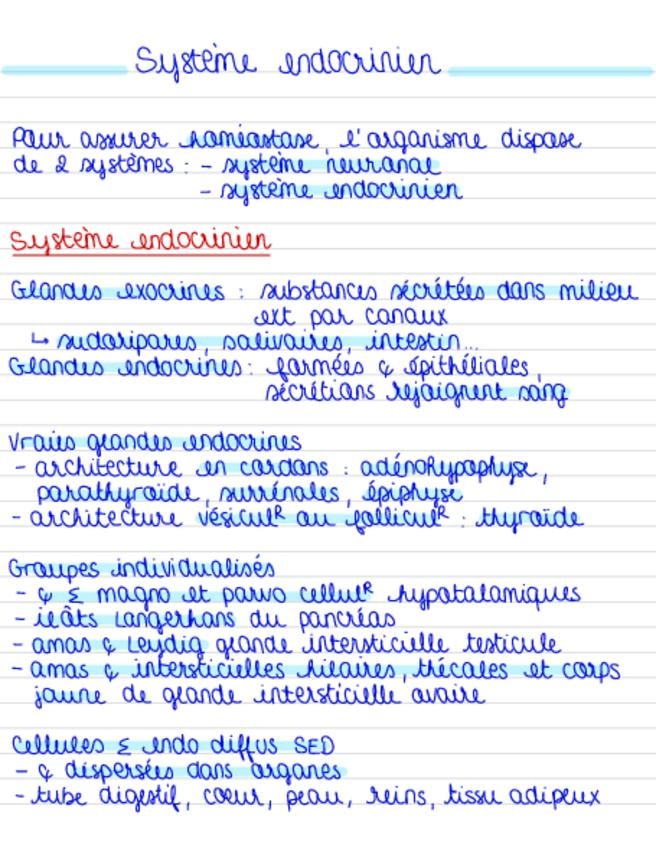 Système endocrinien
Pour assurer homéostase, l'organisme dispose
de 2 systèmes : - système neuronal
- système endocrinien
Système endocrinien
Glandes exocrines : substances sécrétées dans milieu
ext par canaux
↳ sudoripares, salivaires, intestin...
Glandes endocrines : formées ȼ épithéliales,
sécrétions rejoignent sang
Vraies glandes endocrines
- architecture en cordons : adénohypophyse,
parathyroïde, surrénales, épiphyse
- architecture vésiculᴿ ou folliculᴿ : thyroïde
Groupes individualisés
- ȼ Σ magno et parvo cellulᴿ hypotalamiques
- ilôts Langerhans du pancréas
- amas ȼ Leydig glande intersticielle testicule
- amas ȼ intersticielles hilaires, thécales et corps
jaune de glande intersticielle ovaire
Cellules Σ endo diffus SED
- ȼ dispersées dans organes
- tube digestif, coeur, peau, reins, tissu adipeux